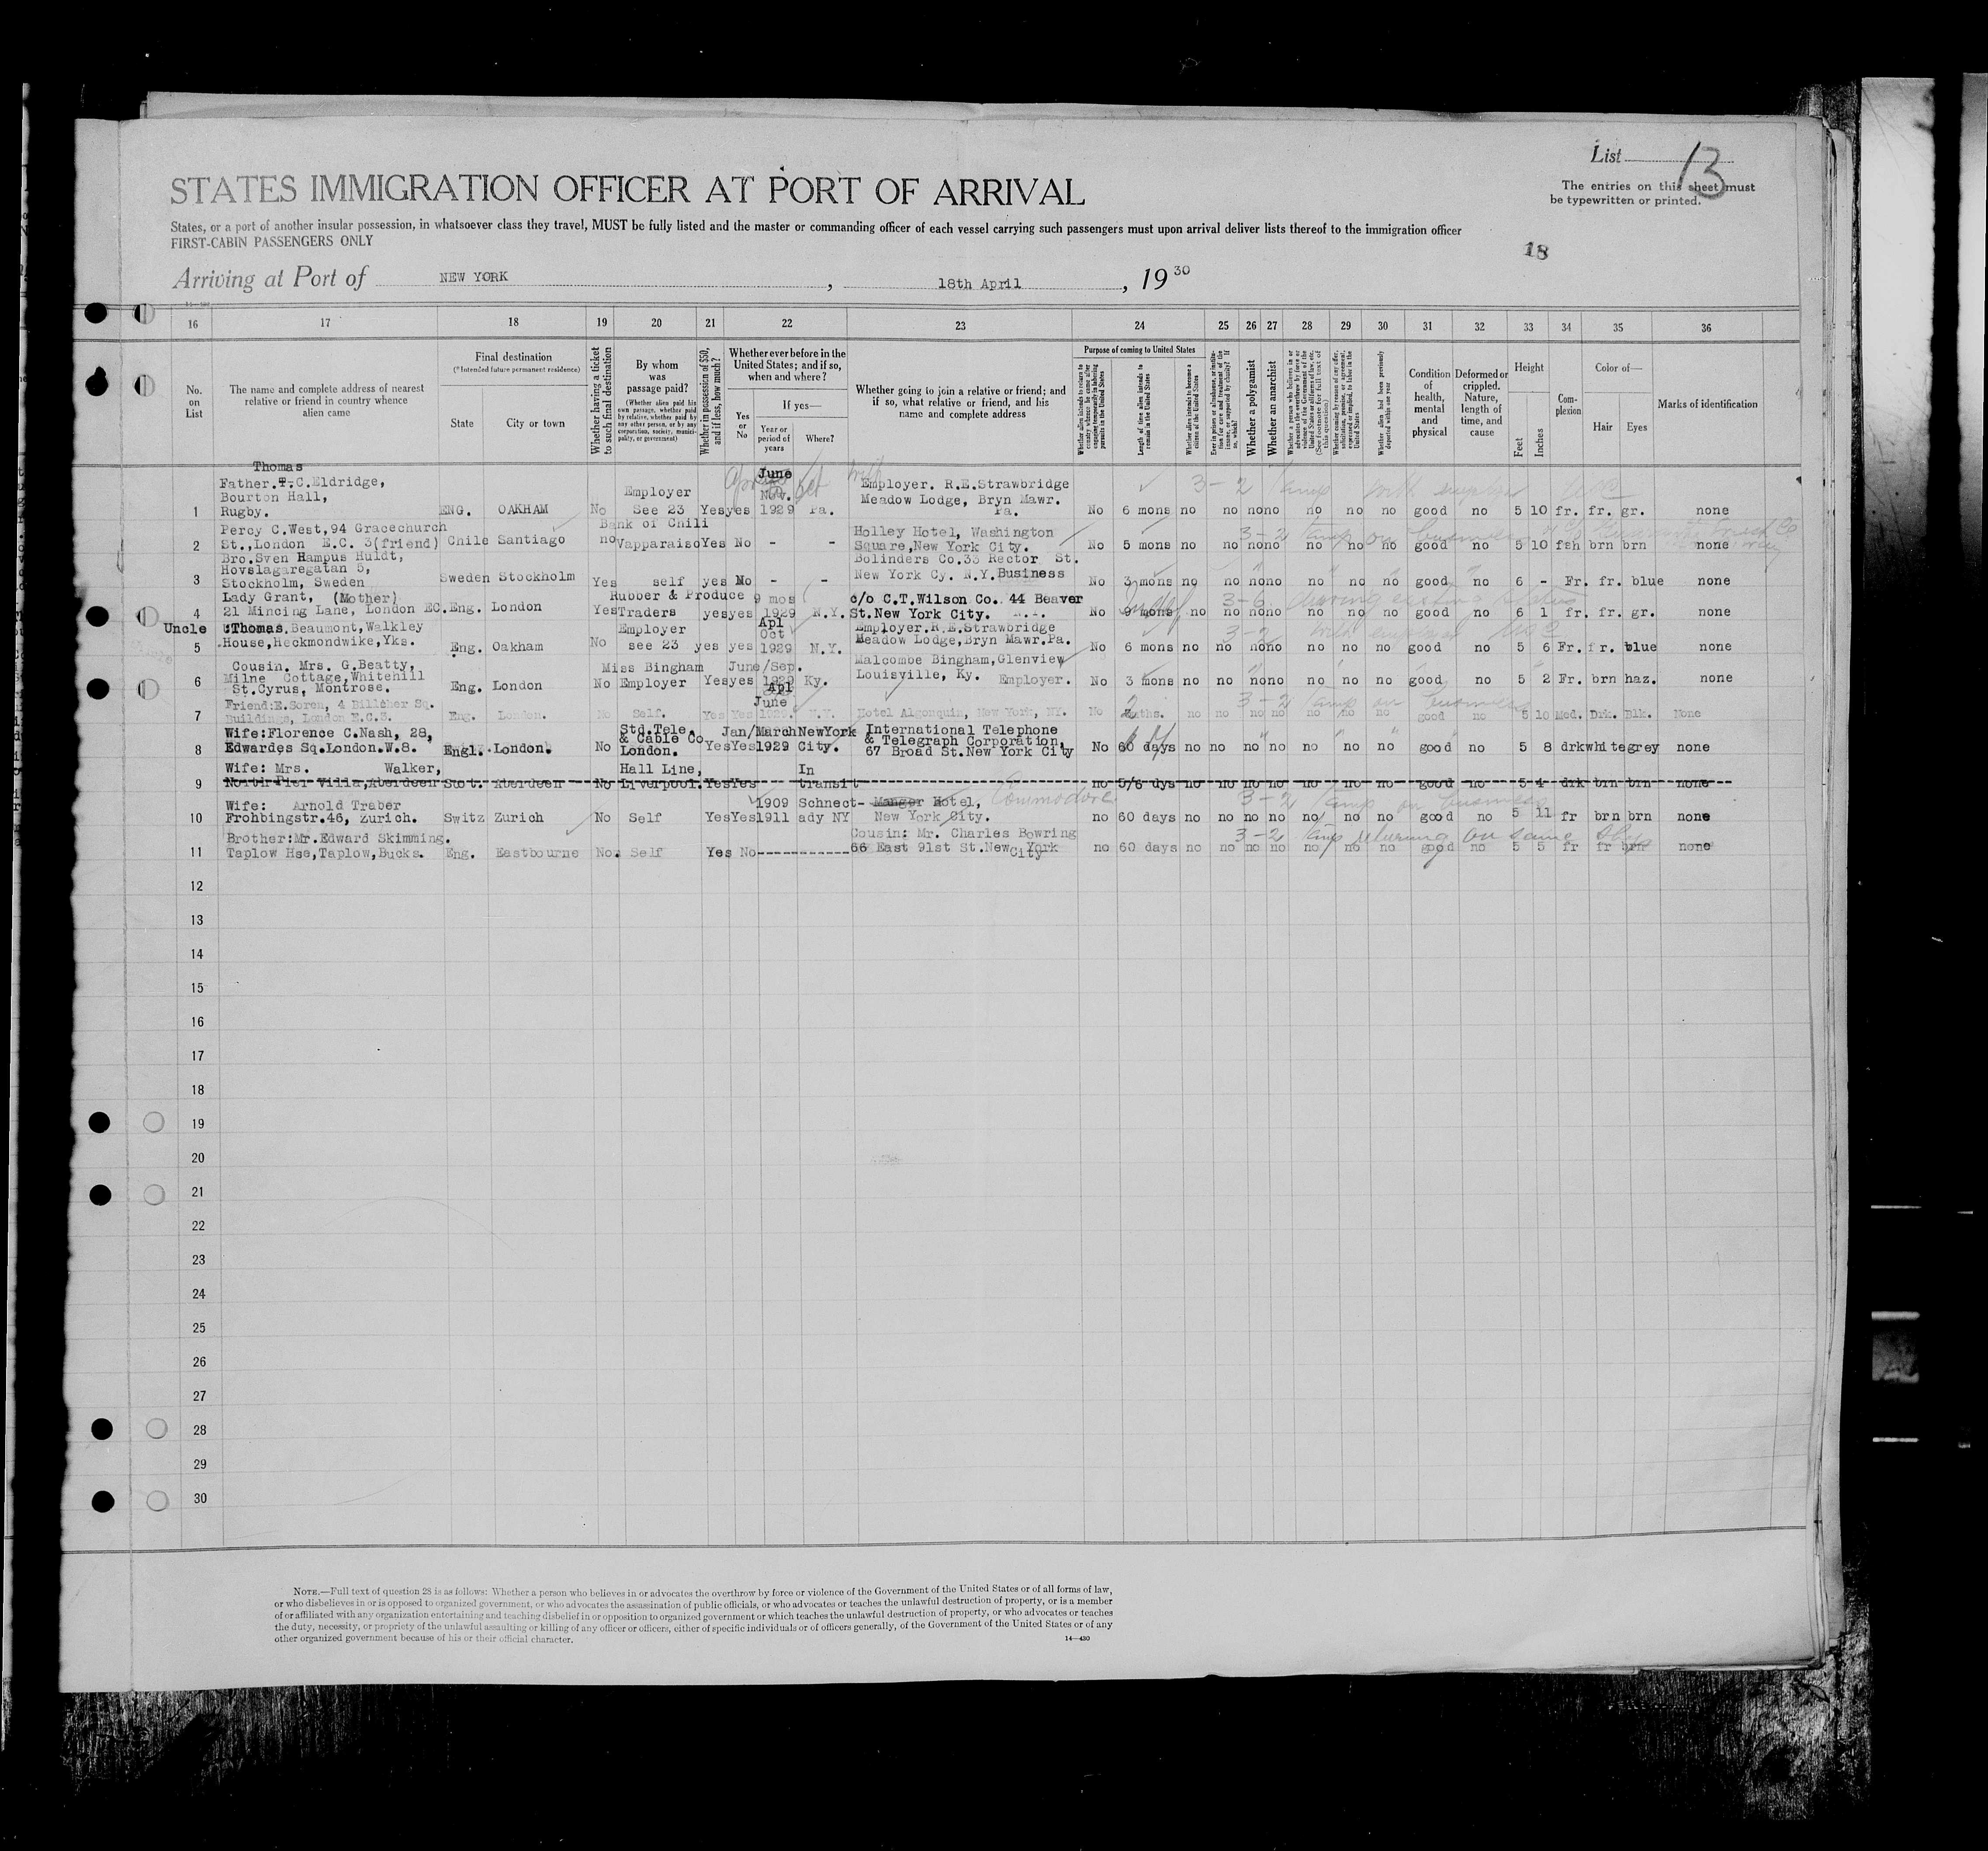 List 13
The entries on this sheet must
be typewritten or printed.
STATES IMMIGRATION OFFICER AT PORT OF ARRIVAL
States, or a port of another insular possession, in whatsoever class they travel, MUST be fully listed and the master or commanding officer of each vessel carrying such passengers must upon arrival deliver lists thereof to the immigration officer
FIRST-CABIN PASSENGERS ONLY
18
Arriving at Port of NEW YORK, 18th April, 1930
16 17 18 19 20 21 22 23 24 25 26 27 28 29 30 31 32 33 34 35 36
No. on List
The name and complete address of nearest relative or friend in country whence alien came
Final destination
(*Intended future permanent residence)
State
City or town
Whether having a ticket to such final destination
By whom was passage paid?
(Whether alien paid his own passage, whether paid by relative, whether paid by any other person, or by any corporation, society, municipality, or government)
Whether in possession of $50, and if less, how much?
Whether ever before in the United States; and if so, when and where?
Yes or No
If yes—
Year or period of years
Where?
Whether going to join a relative or friend; and if so, what relative or friend, and his name and complete address
Purpose of coming to United States
Length of time alien intends to remain in the United States
Whether alien intends to become a citizen of the United States
Whether a polygamist
Whether an anarchist
Condition of health, mental and physical
Deformed or crippled. Nature, length of time, and cause
Height
Feet
Inches
Complexion
Color of—
Hair
Eyes
Marks of identification
1 Father. T. C.Eldridge, Thomas
Bourton Hall,
Rugby. ENG. OAKHAM No Employer See 23 Yes yes June Nov. 1929 Pa. with Employer. R.E.Strawbridge Meadow Lodge, Bryn Mawr. Pa. No 6 mons no no no no no no no good no 5 10 fr. fr. gr. none
2 Percy C.West,94 Gracechurch
St.,London E.C. 3(friend) Chile Santiago no Bank of Chili Vapparaiso Yes No - - Holley Hotel, Washington Square,New York City. No 5 mons no no no no no no no good no 5 10 fsh brn brn none
3 Bro.Sven Hampus Huldt,
Hovslagaregatan 5,
Stockholm, Sweden Sweden Stockholm Yes self yes No - - Bolinders Co.33 Rector St. New York Cy. N.Y. Business No 3 mons no no no no no no no good no 6 - Fr. fr. blue none
4 Lady Grant, (Mother)
21 Mincing Lane, London EC. Eng. London Yes Rubber & Produce Traders yes yes 9 mos 1929 N.Y. c/o C.T.Wilson Co. 44 Beaver St.New York City. No 9 mons no no no no no no no good no 6 1 fr. fr. gr. none
5 Uncle :Thomas.Beaumont,Walkley
House,Heckmondwike,Yks. Eng. Oakham No Employer see 23 yes yes Apl Oct 1929 N.Y. Employer.R.E.Strawbridge Meadow Lodge,Bryn Mawr.Pa. No 6 mons no no no no no no no good no 5 6 Fr. fr. blue none
6 Cousin. Mrs. G.Beatty,
Milne Cottage,Whitehill
St.Cyrus, Montrose. Eng. London No Miss Bingham Employer Yes yes June/Sep. 1929 Ky. Malcombe Bingham,Glenview Louisville, Ky. Employer. No 3 mons no no no no no no no good no 5 2 Fr. brn haz. none
7 Friend:E.Soren, 4 Billiter Sq.
Buildings, London E.C.3. Eng. London. No Self. Yes Yes Apl June 1929. N.Y. Hotel Algonquin, New York, NY. No 2 mths. no no no no no no no good no 5 10 Med. Drk. Blk. None
8 Wife:Florence C.Nash, 28,
Edwardes Sq.London.W.8. Engl. London. No Std.Tele. & Cable Co London. Yes Yes Jan/March 1929 NewYork City. International Telephone & Telegraph Corporation, 67 Broad St.New York City No 60 days no no no no no no no good no 5 8 drk white grey none
9 Wife: Mrs. Walker,
North Pier Villa,Aberdeen Scot. Aberdeen No Hall Line, Liverpool. Yes Yes In transit no 5/6 dys no no no no no no no good no 5 4 drk brn brn none
10 Wife: Arnold Traber
Frohbingstr.46, Zurich. Switz Zurich No Self Yes Yes 1909 1911 Schnectady NY Manger Hotel, Commodore New York City. no 60 days no no no no no no no good no 5 11 fr brn brn none
11 Brother:Mr.Edward Skimming.
Taplow Hse,Taplow,Bucks. Eng. Eastbourne No. Self Yes No Cousin: Mr. Charles Bowring 66 East 91st St.New York City no 60 days no no no no no no no good no 5 5 fr fr brn none
12
13
14
15
16
17
18
19
20
21
22
23
24
25
26
27
28
29
30
NOTE.—Full text of question 28 is as follows: Whether a person who believes in or advocates the overthrow by force or violence of the Government of the United States or of all forms of law,
or who disbelieves in or is opposed to organized government, or who advocates the assassination of public officials, or who advocates or teaches the unlawful destruction of property, or is a member
of or affiliated with any organization entertaining and teaching disbelief in or opposition to organized government or which teaches the unlawful destruction of property, or who advocates or teaches
the duty, necessity, or propriety of the unlawful assaulting or killing of any officer or officers, either of specific individuals or of officers generally, of the Government of the United States or of any
other organized government because of his or their official character.
14—430